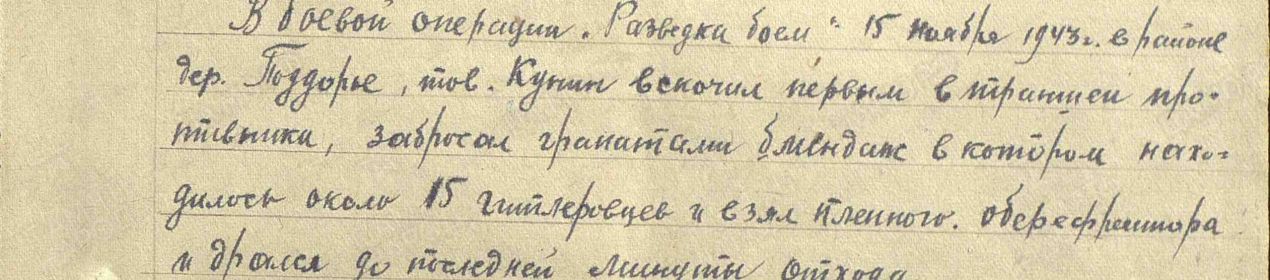 В боевой операции „Разведка боем“ 15 ноября 1943г. в районе
дер. Поддорье, тов. Кунин вскочил первым в траншеи про-
тивника, забросал гранатами блендаж в котором нахо-
дилось около 15 гитлеровцев и взял пленного. оберефрейтора
и дрался до последней минуты отхода